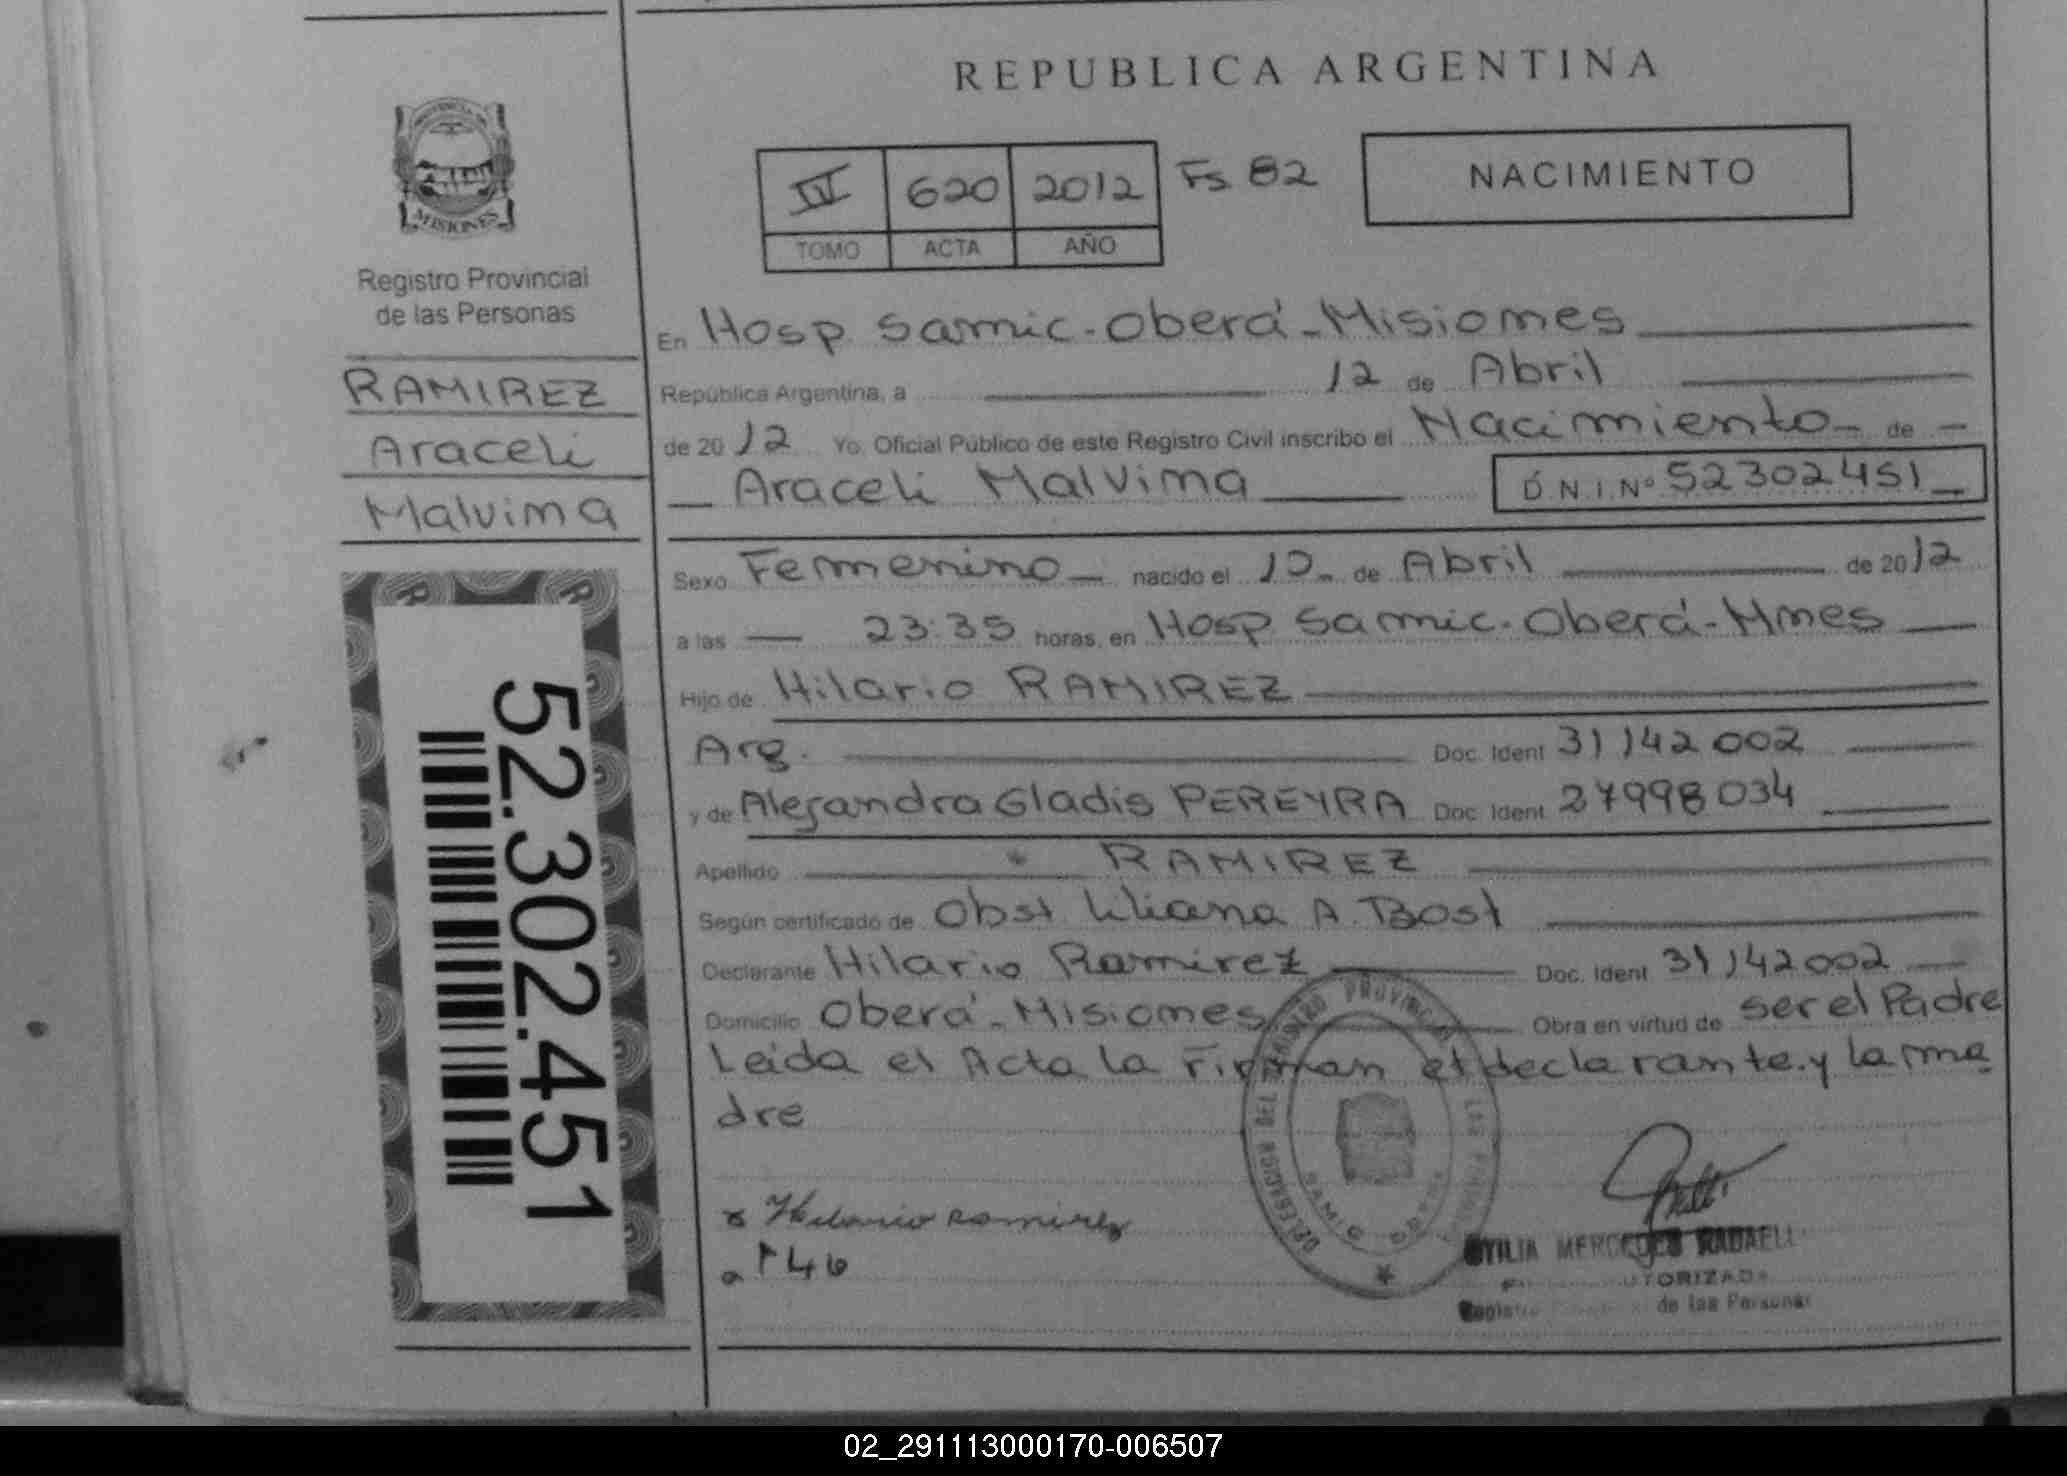 REPUBLICA ARGENTINA
MISIONES
Registro Provincial
de las Personas
RAMIREZ
Araceli
Malvina
52.302.451
IV 620 2012 Fs 82
TOMO ACTA AÑO
NACIMIENTO
En Hosp Samic - Oberá - Misiones
República Argentina, a 12 de Abril
de 2012 Yo, Oficial Público de este Registro Civil inscribo el Nacimiento de
Araceli Malvina D.N.I.Nº 52302451
Sexo Femenino nacido el 10 de Abril de 2012
a las 23:35 horas, en Hosp Samic - Oberá - Mnes
Hijo de Hilario RAMIREZ
Arg. Doc. Ident 31142002
y de Alejandra Gladis PEREYRA Doc. Ident 27998034
Apellido RAMIREZ
Según certificado de Obst Liliana A. Bost
Declarante Hilario Ramirez Doc. Ident 31142002
Domicilio Oberá - Misiones Obra en virtud de ser el Padre
Leida el Acta la Firman el declarante y la ma
dre
x Hilario Ramirez
DELEGACION DEL REGISTRO PROVINCIAL DE LAS PERSONAS
SAMIC OBERA
MERCEDES RADAELLI
AUTORIZADA
Registro de las Personas
02_291113000170-006507